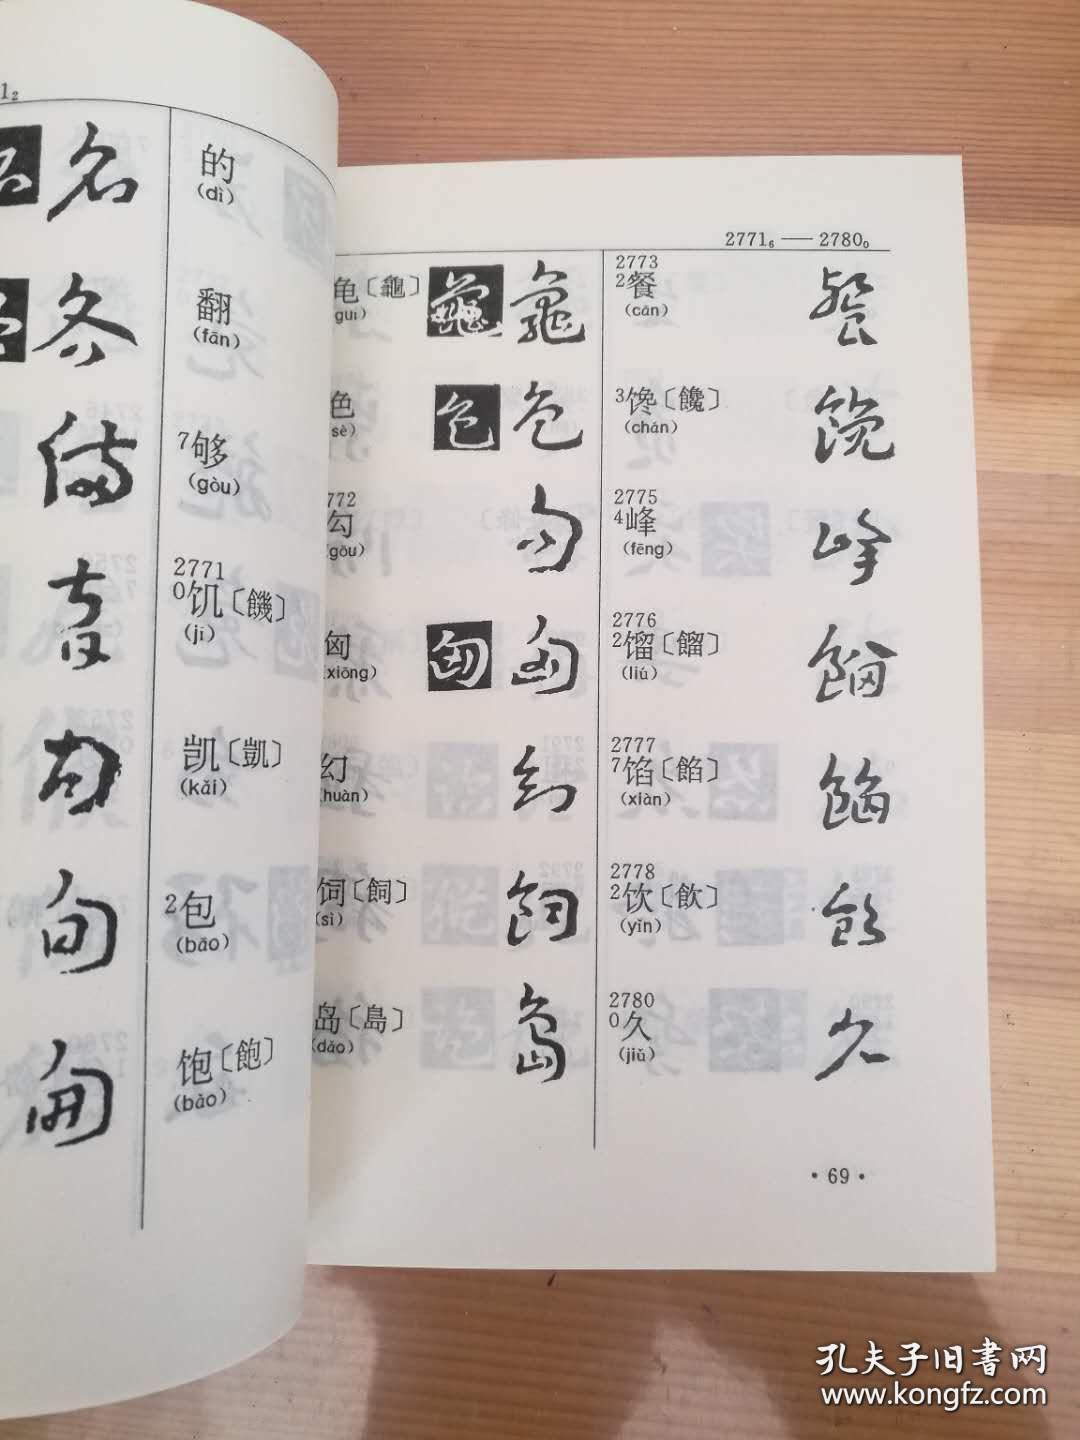 1₂
名
的
(dì)
冬
翻
(fān)
⁷够
(gòu)
2771
⁰饥〔饑〕
(jī)
凯〔凱〕
(kǎi)
²包
(bāo)
旬
饱〔飽〕
(bǎo)
2771₆—2780₀
龟〔龜〕
gui)
龜
龜
色
sè)
色
色
772
勾
gōu)
勾
匈
xiōng)
匈
匈
幻
huàn)
幻
饲〔飼〕
(sì)
飼
岛〔島〕
(dǎo)
島
2773
²餐
(cān)
餐
³馋〔饞〕
(chán)
2775
⁴峰
(fēng)
峰
2776
²馏〔餾〕
(liú)
2777
⁷馅〔餡〕
(xiàn)
餡
2778
²饮〔飲〕
(yǐn)
飲
2780
⁰久
(jiǔ)
久
·69·
孔夫子旧書网
www.kongfz.com